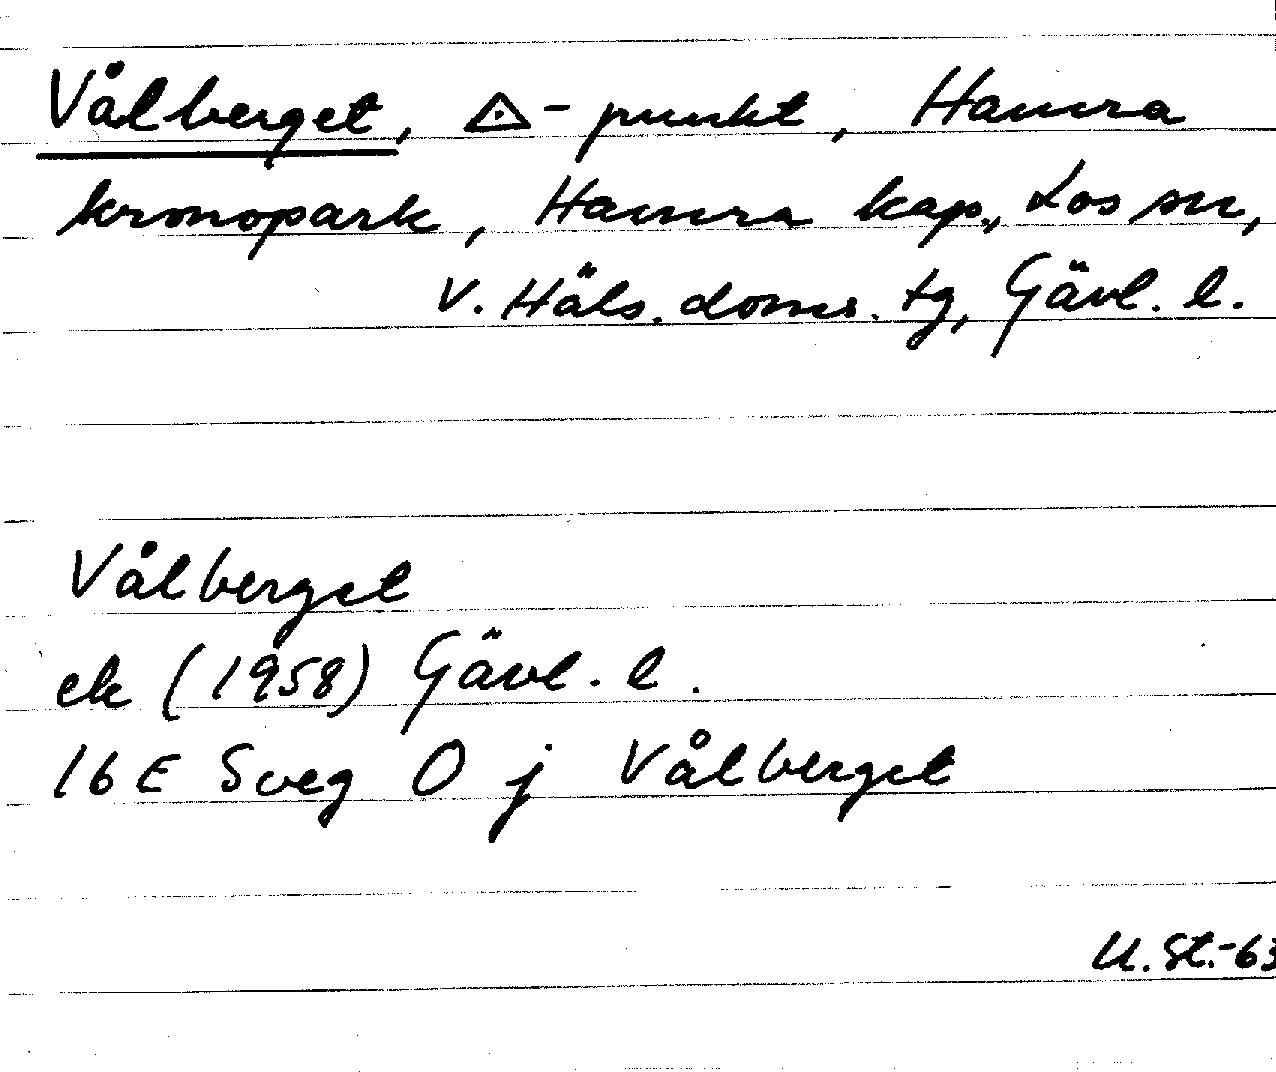 Vålberget, △-punkt, Hamra
kronopark, Hamra kap., Los sn,
V. Häls. doms. tg, Gävl. l.
Vålberget
ek (1958) Gävl. l.
16 E Sveg O j Vålberget
U. St.-63